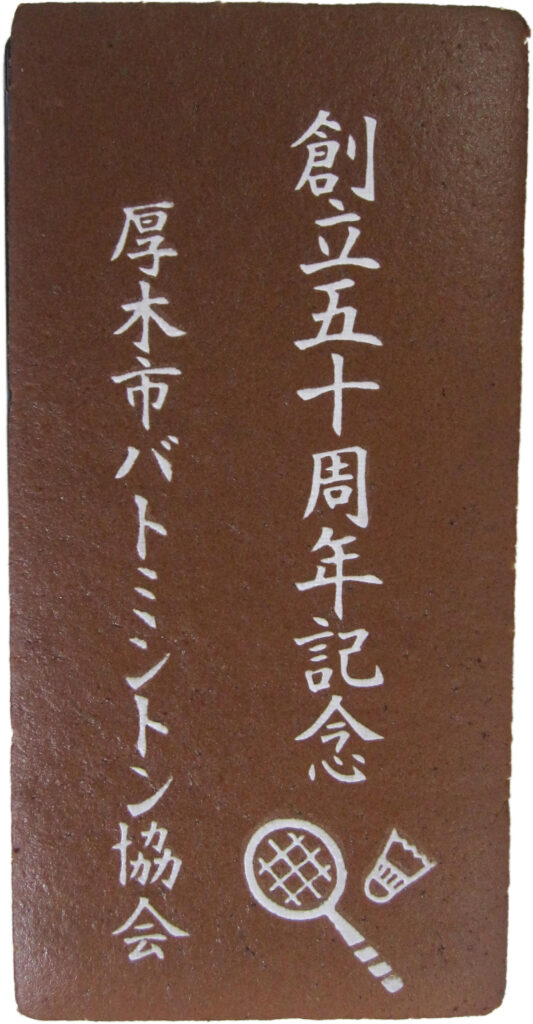 創立五十周年記念
厚木市バトミントン協会